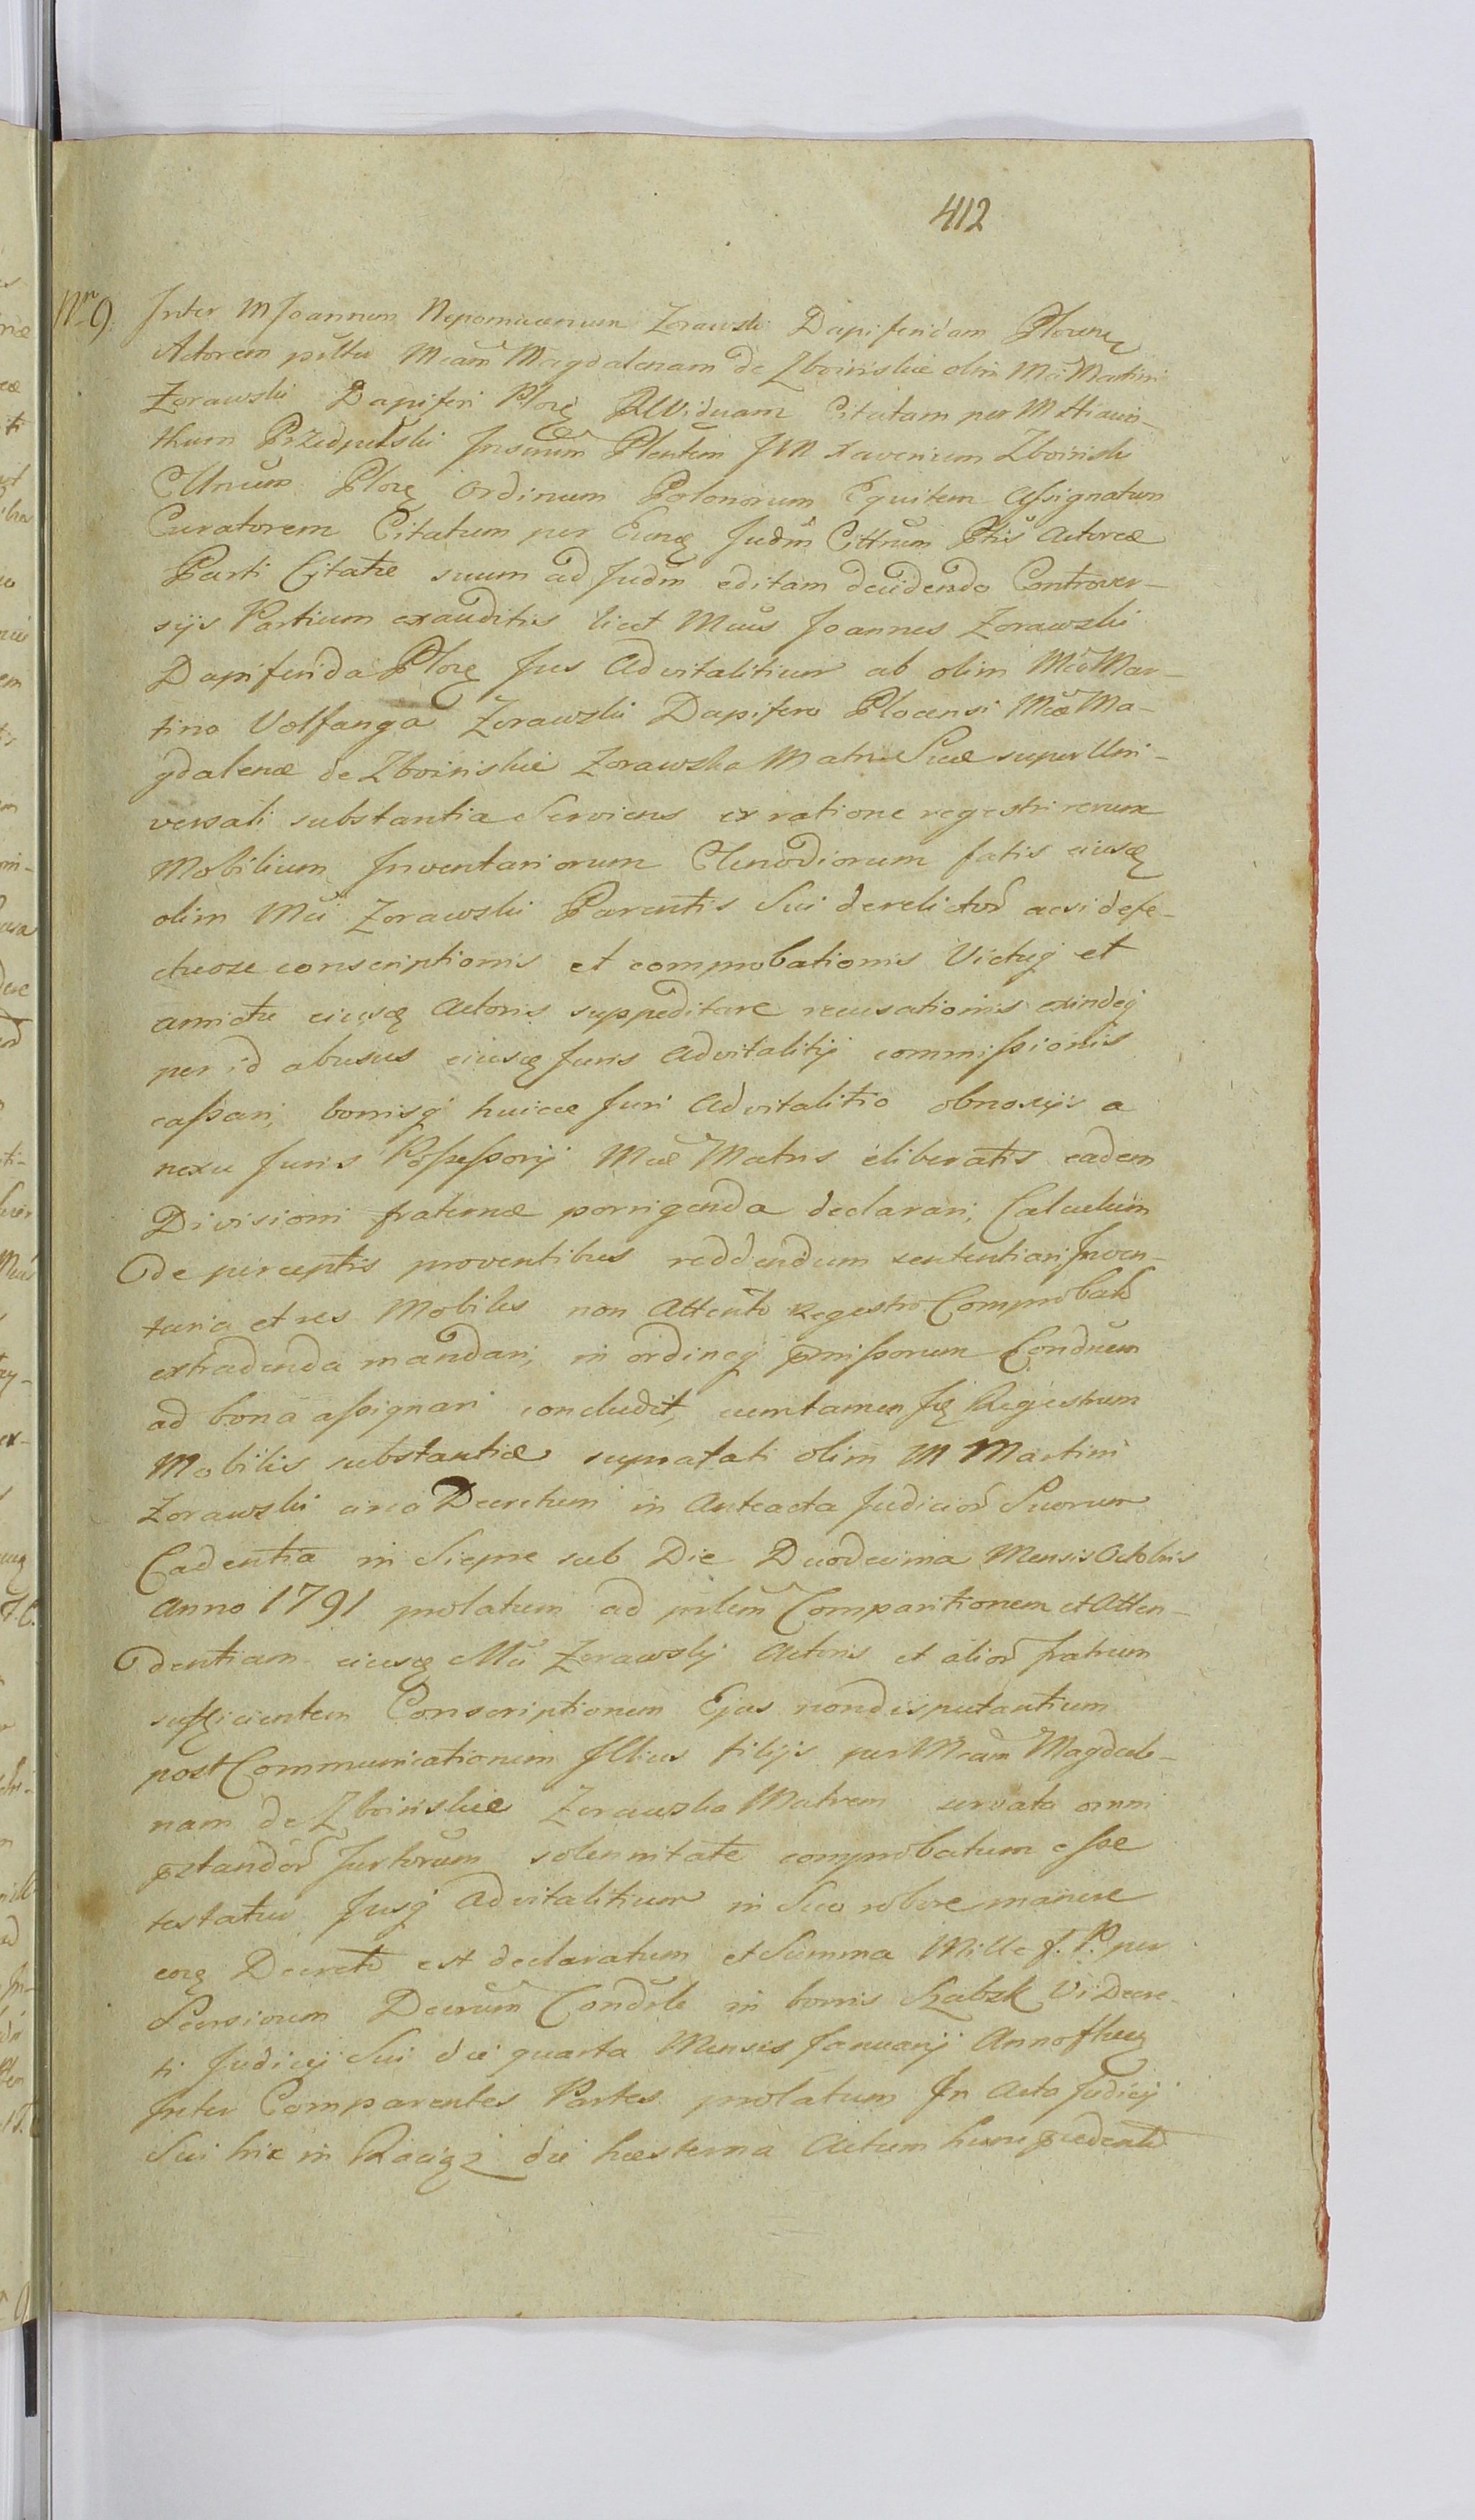 412
Nr 9. Inter M Joannem Nepomucenum Zorawski Dapiferidam Plocens
Actorem Mcam Magdalenam de Zboinskie olim Mci Martini
Zorawski Dapiferi Ploc Viduam Citatam per M Hiacin-
thum Przedpełski Plentem JM Xaverium Zboinski
Ploc Ordinum Polonorum Equitem Assignatum
Curatorem Citatum per Judm Cttnum Ptis Actoreæ
Parti Citatæ suum ad Judm editam decidendo Controver-
sijs Partium exauditis licet Mcus Joannes Zorawski
Dapiferida Ploc Jus Advitalitium ab olim Mco Mar-
tino Volfango Zorawski Dapifero Plocensi Mcæ Ma-
gdalenæ de Zboinskie Zorawska Matri Suæ super Uni-
versali substantia Serviens ex ratione regestri rerum
Mobilium Inventariorum Clenodiorum fatis eiusq
olim Mci Zorawski Parentis Sui derelictor acsi defe-
ctuose conscriptionis et comprobationis Victusq et
amictu eiusq Actoris suppeditare recusationis exindeq
per id abusus eiusq Juris Advitalitij commissionis
cassari, bonisq huicce Juri Advitalitio obnoxijs a
nexu Juris Possessorij Mcæ Matris eliberatis eadem
Divisioni fraternæ porrigenda declarari, Calculum
de perceptis proventibus reddendum sententiari, Inven-
taria et res Mobiles non Attento Regestro Comprobato
extradenda mandari, in ordineq pmissorum Condnem
ad bona assignari concludit, cum tamen Regestrum
Mobilis substantiæ suprafati olim M Martini
Zorawski circa Decretum in Anteacta Judicior Suorum
Cadentia in Sierpc sub Die Duodecima Mensis Octobris
Anno 1791 prolatum ad Comparitionem et Atten-
dentiam eiusq Mci Zorawski Actoris et alior fratrum
sufficientem Conscriptionem Ejus non disputantium
post Communicationem Illius filijs per Mcam Magdale-
nam de Zboinskie Zorawska Matrem servata omni
pstandor Jurtorum solennitate comprobatum esse
testatur Jusq Advitalitium in Suo robore manere
Decreto est declaratum et Summa Mille f. P. per
Decrum in bonis Vi Decre-
ti Judicij Sui die quarta Mensis Januarij Anno
Inter Comparentes Partes prolatum In Acta Judicij
Sui hic in Raciąz die hesterna Actum hunc